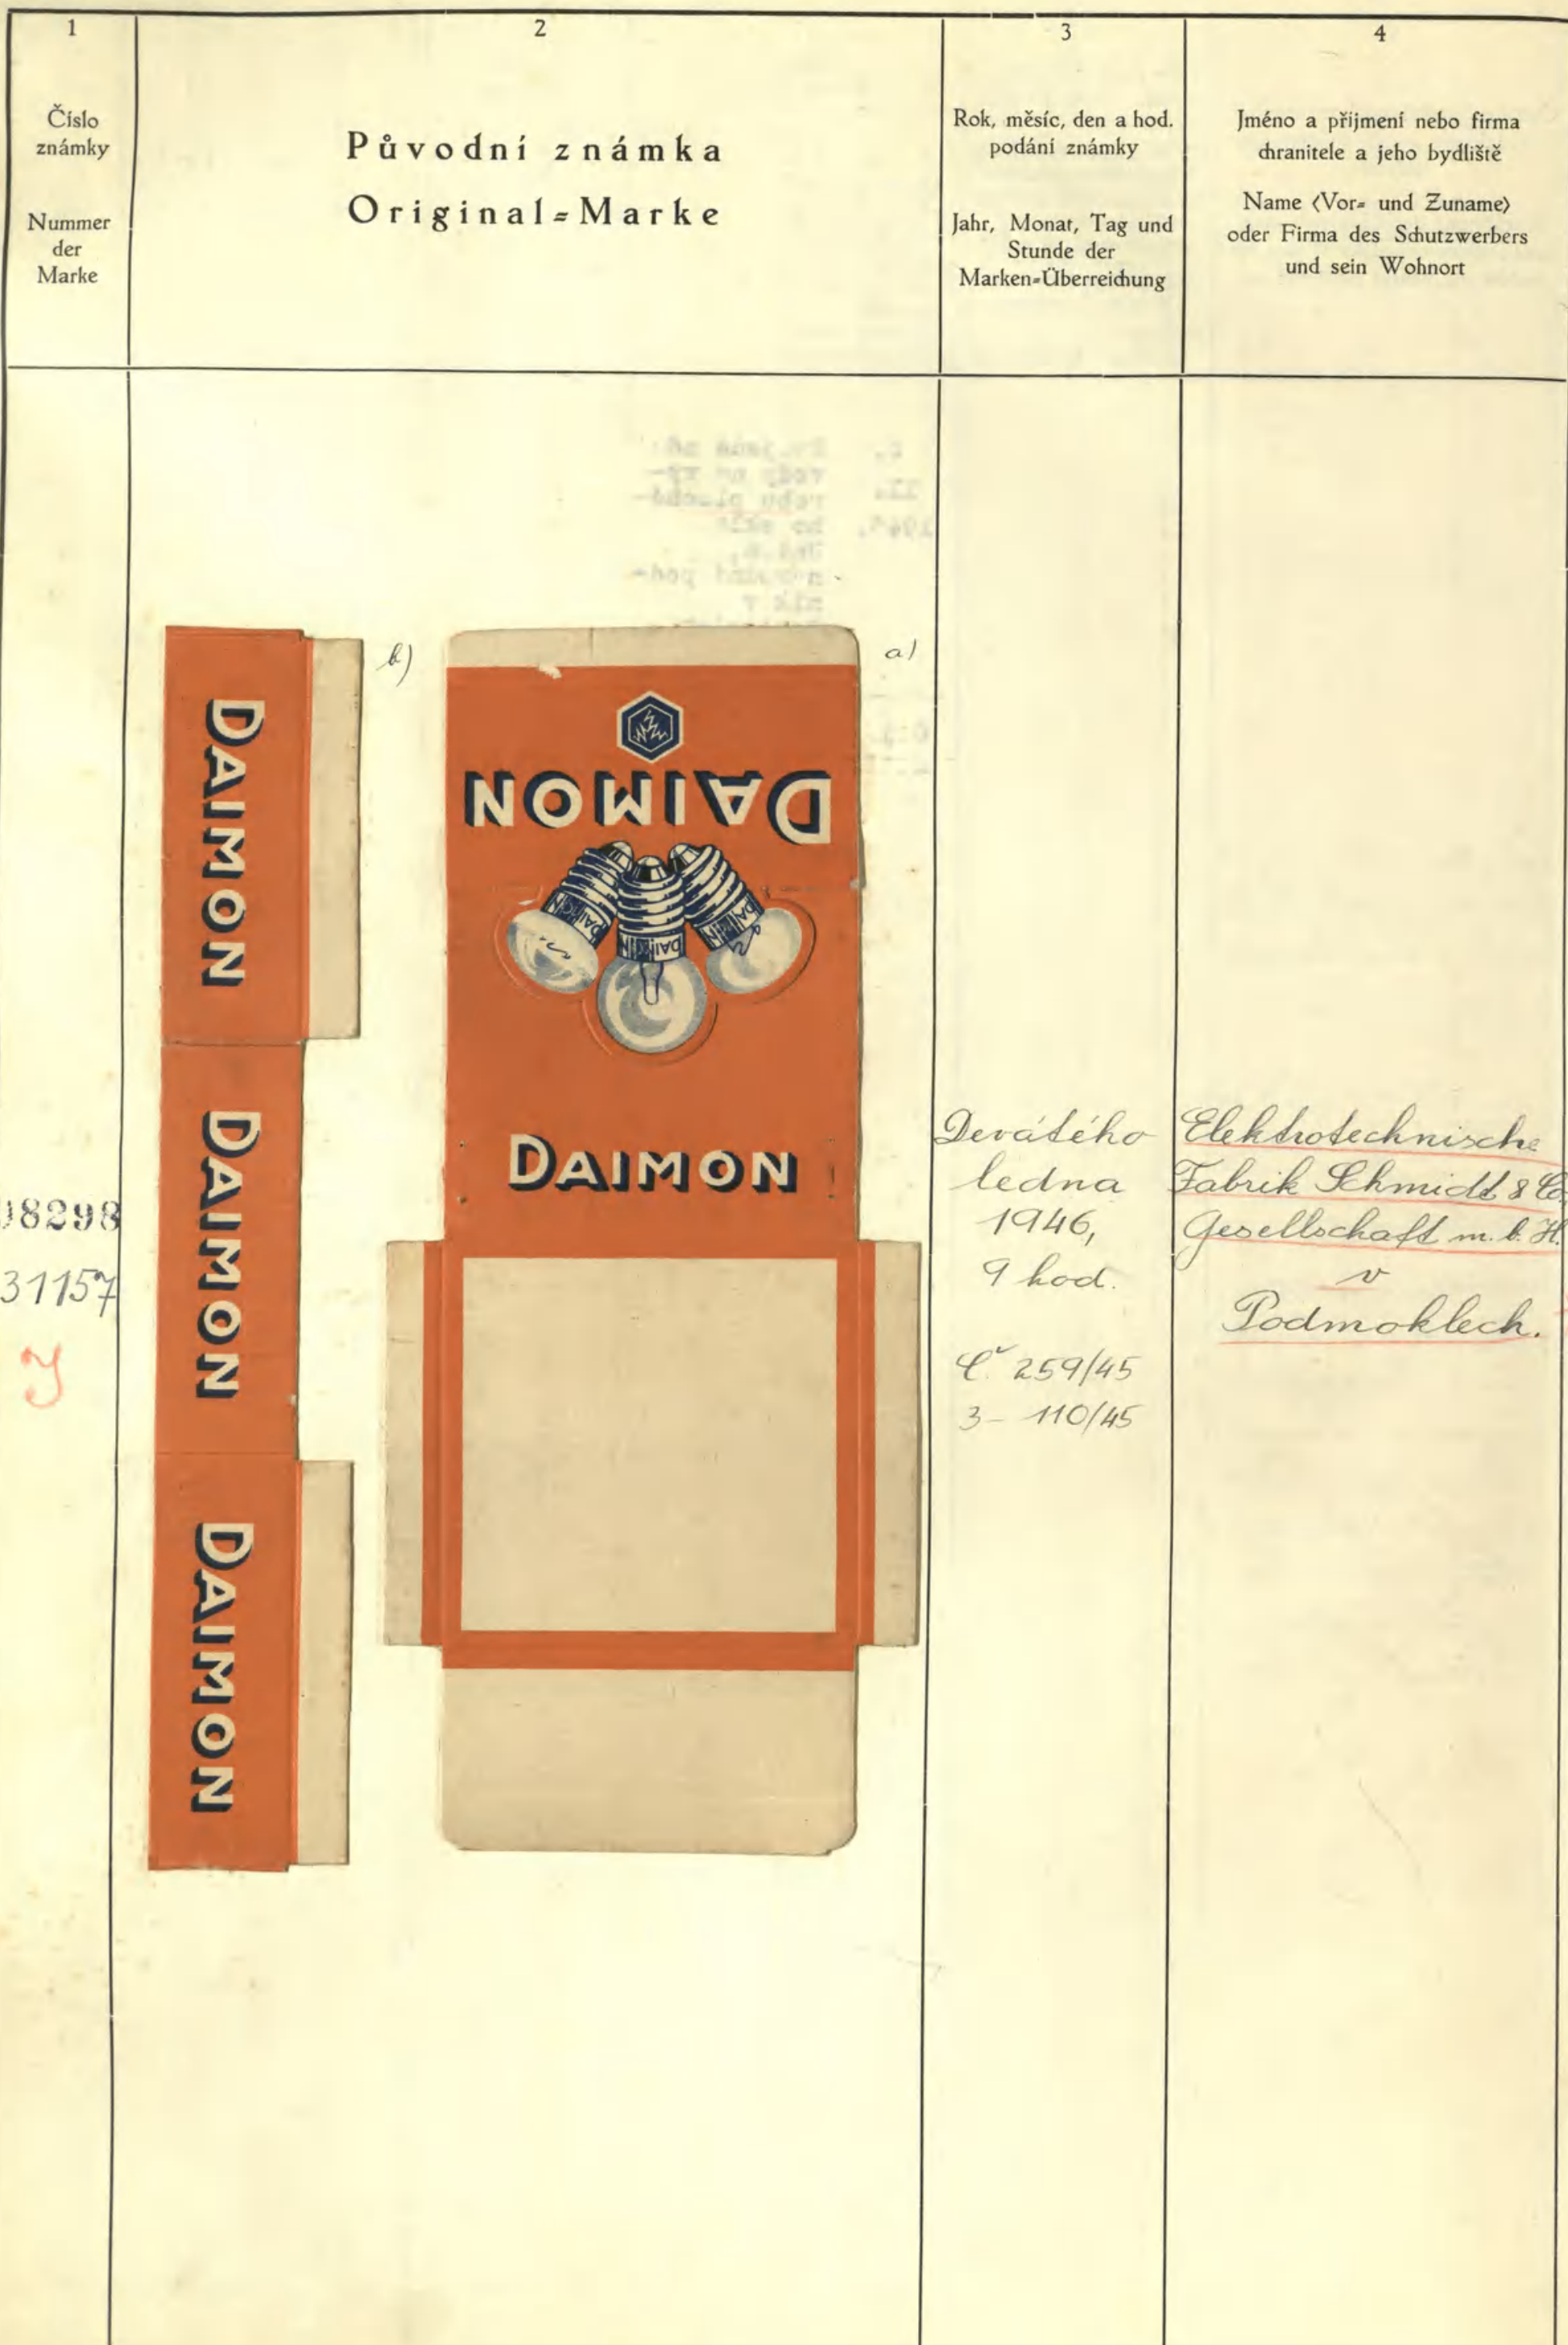 1
Číslo
známky
Nummer
der
Marke
2
Původní známka
Original-Marke
3
Rok, měsíc, den a hod.
podání známky
Jahr, Monat, Tag und
Stunde der
Marken-Überreichung
4
Jméno a přijmení nebo firma
chranitele a jeho bydliště
Name (Vor- und Zuname)
oder Firma des Schutzwerbers
und sein Wohnort
8298
31157
b)
DAIMON
DAIMON
DAIMON
a)
DAIMON
DAIMON
DAIMON
DAIMON
DAIMON
Devátého
ledna
1946,
9 hod.
Č. 259/45
3- 110/45
Elektrotechnische
Fabrik Schmidt & Co.
Gesellschaft m. b. H.
v
Podmoklech.